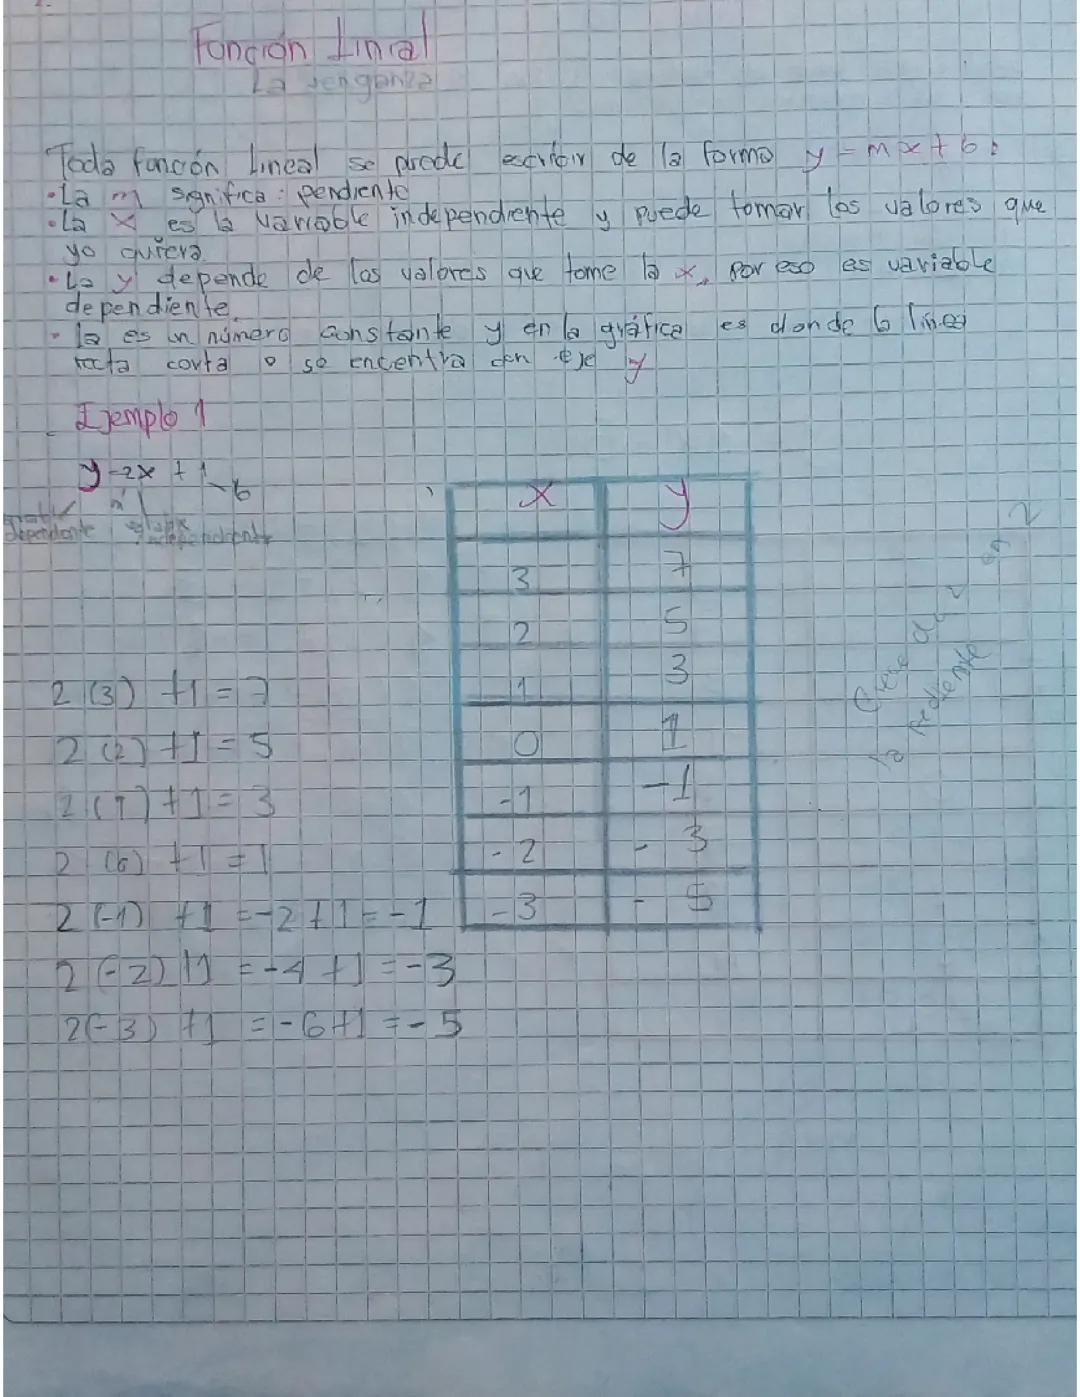 Función Lineal
La venganza
Toda función Lineal se puede escribir de la forma y = mx + b:
• La m significa: pendiente
• La x es la variable independiente y puede tomar los valores que
yo quiera
• La y depende de los valores que tome la x, por eso es variable
dependiente.
• la es un número constante y en la gráfica es donde la linea
recta corta o se encentra con eje y
Ejemplo 1
y=2x + 1
m
b
Dependiente
x y
3 7
2 5
1 3
0 1
-1 -1
-2 -3
-3 -5
Crece de 2 en 2
la pediente
2 (3) +1 = 7
2 (2) +1 = 5
2 (1) +1 = 3
2 (0) +1 = 1
2 (-1) +1 = -2+1 = -1
2 (-2) +1 = -4 +1 = -3
2(-3) +1 = -6+1 = -5